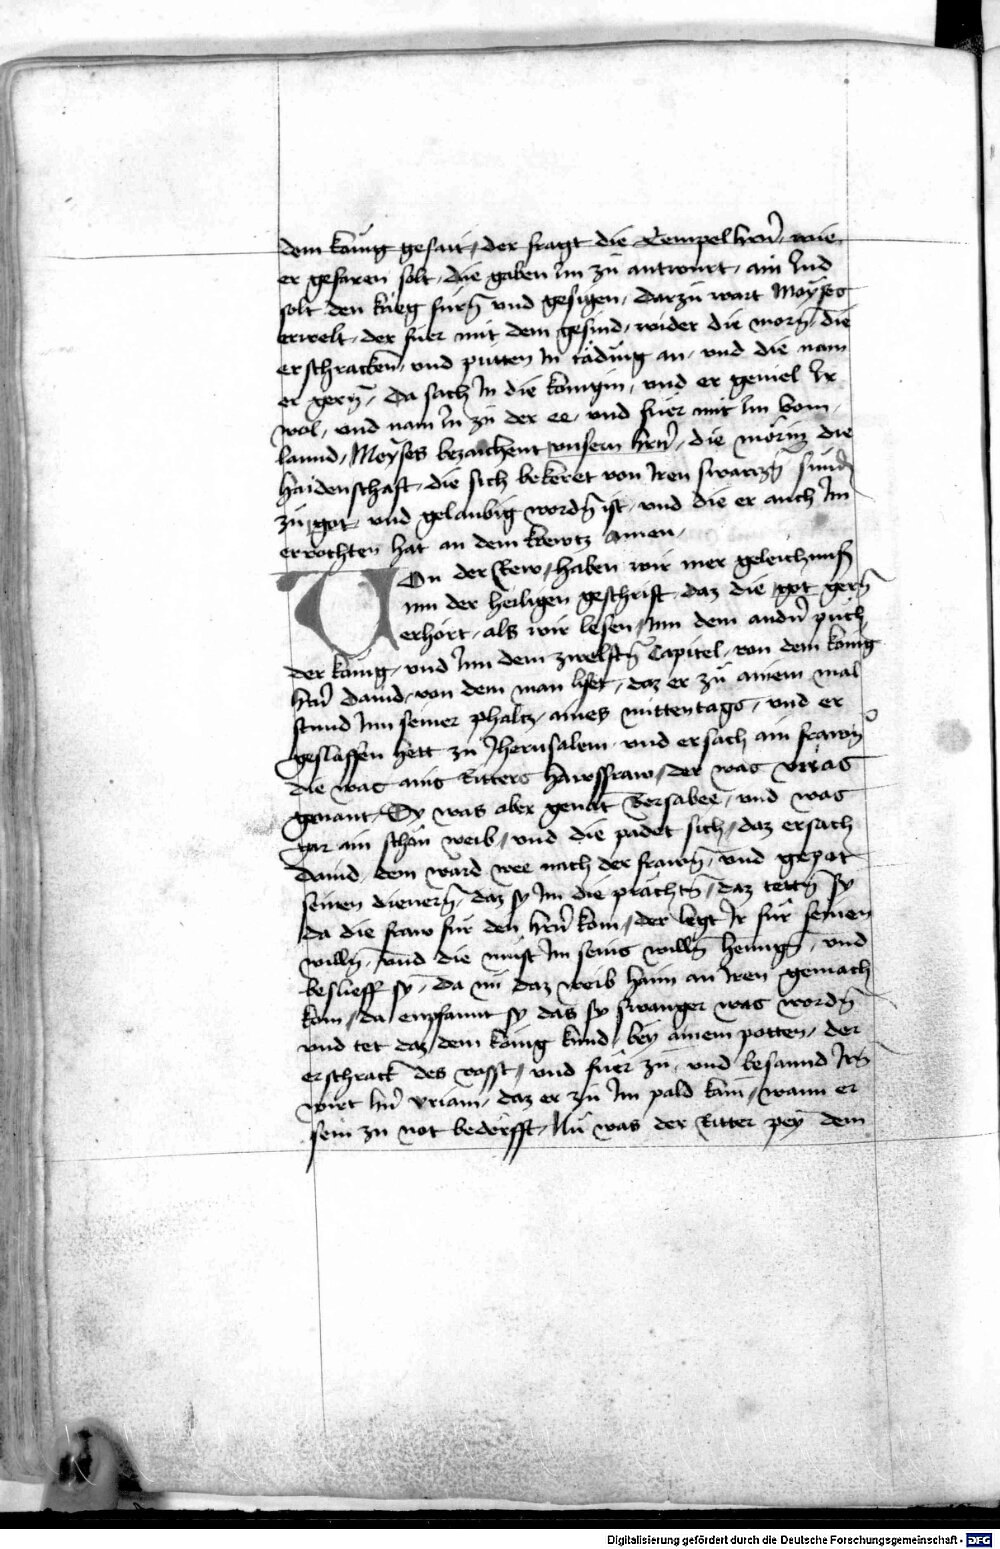 dem künig gesait / der fragt die Tempel hrn̄ / wie
er gefaren solt / die gaben im zu antwurt / ain Jud
solt den krieg fürn̄ vnd gesigen / darzu wart Moyses
erwelt / der fuer mit dem gesind / wider die morn̄ / die
erschracken / vnd putten In täding an / vnd die nam
er gern̄ / Da sach In die künigin / vnd er geuiel Ir
wol / vnd nam In zu der ee / vnd fuer mit Im vom
lannd / Moyses bezaichent vnsern hrn̄ / die mörin die
haidenschaft / die sich bekeret von Iren swarczn̄ sündn̄
zu got / vnd gelaubig wordn̄ ist / vnd die er auch Im
ervochten hat an dem krewtz amen /
Von der Rew / haben wir mer geleichnuss
Inn der heiligen geschrift / daz die got gern̄
erhört / als wir lesen / Inn dem andn̄ puch
der künig / vnd Inn dem zwelftn̄ Capitel / von dem künig
hrn̄ Dauid / von dem man liset / daz er zu ainem mal
stund Inn seiner phalcz / aines mittentags / vnd er
geslaffen hett zu Jherusalem / vnd ersach ain frawn̄
die was ains Ritters hawsfraw / der was vrias
genant / Sy was aber genāt Bersabee / vnd was
gar ain schön weib / vnd die padet sich / daz ersach
Dauid / dem ward wee nach der frawn̄ / vnd gepot
seinen dienern̄ / daz sy Im die prächtn̄ / daz tettn̄ sy
da die fraw für den hrn̄ kom / der legt Ir für seinen
willn̄ / vnd die must Im seins willn̄ henngn̄ / vnd
beslieff sy / Da nu daz weib haim an Iren gemach
kom / da enpfannt sy das sy swanger was wordn̄
vnd tet daz dem künig kund / bey ainem potten / der
erschrack des vasst / vnd fuer zu / vnd besannd Irn̄
wirt hrn̄ vriam / daz er zu Im pald käm / wann er
sein zu not bedörfft / Nu was der Ritter pey dem
Digitalisierung gefördert durch die Deutsche Forschungsgemeinschaft - DFG